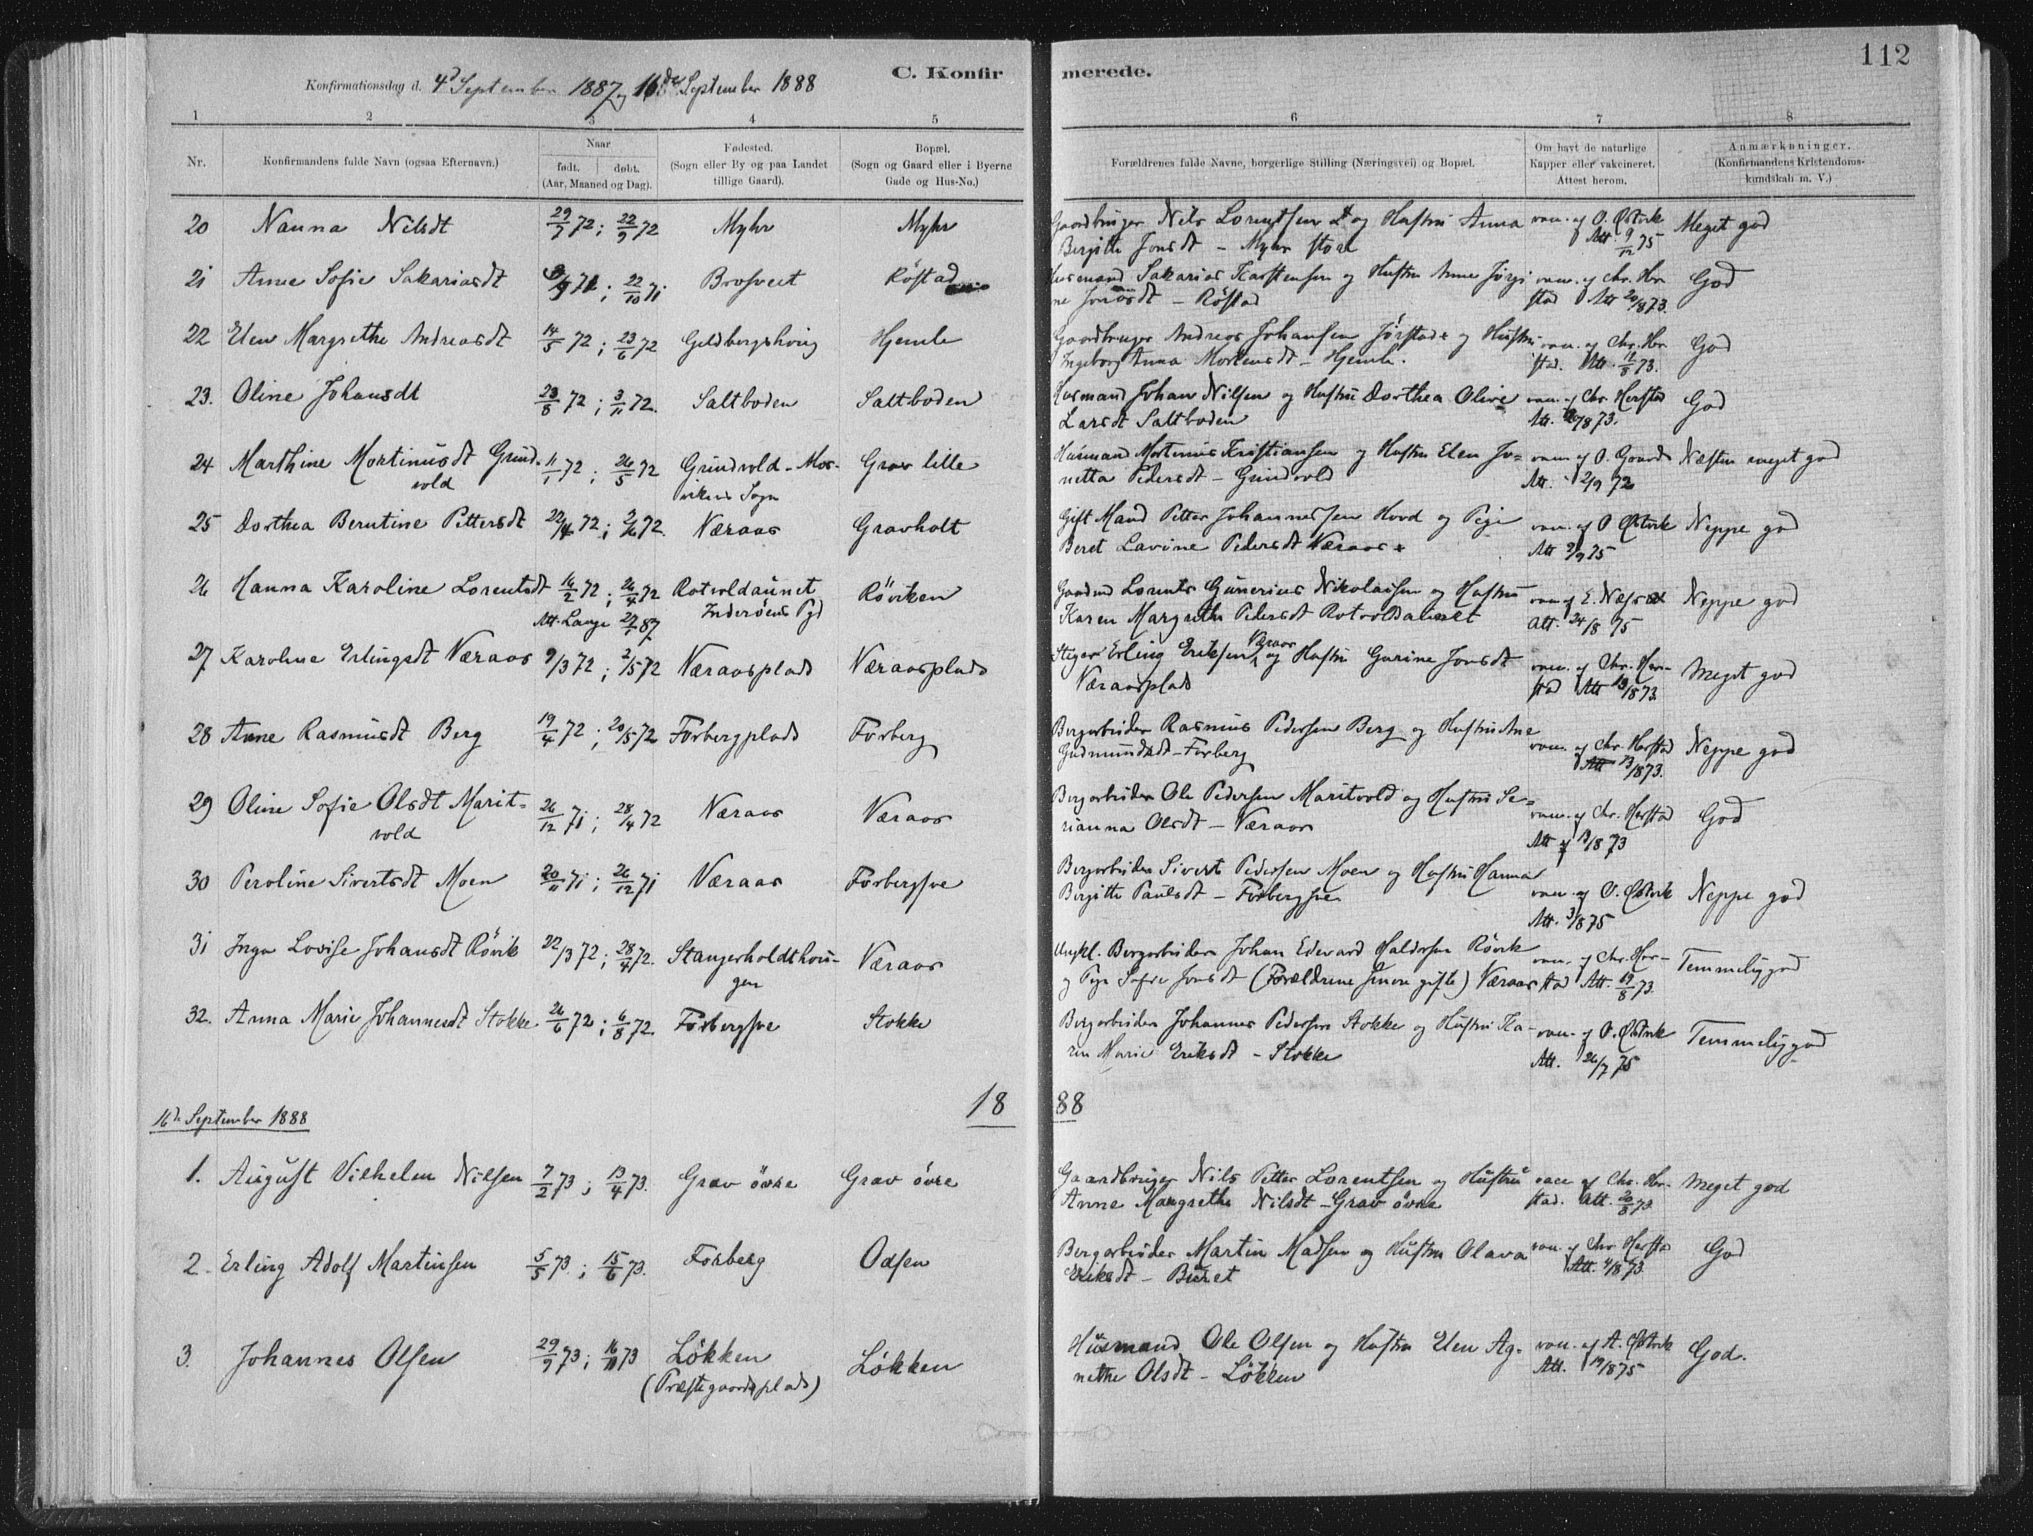 112
C. Konfirmerede.
Konfirmationsdag d. 4d September 1887 og 16de September 1888
1 2 3 4 5 6 7 8
Nr.
Konfirmandens fulde Navn (ogsaa Efternavn.)
Naar
født. døbt.
(Aar, Maaned og Dag).
Fødested.
(Sogn eller By og paa Landet
tillige Gaard).
Bopæl.
(Sogn og Gaard eller i Byerne
Gade og Hus-No.)
Forældrenes fulde Navne, borgerlige Stilling (Næringsvei) og Bopæl.
Om havt de naturlige
Kopper eller vakcineret.
Attest herom.
Anmærkninger.
(Konfirmandens Kristendoms-
kundskab m. V.)
20 Nanna Nilsdt 29/7 72; 22/9 72 Myhr Myhr Gaardbruger Nils Lorentsen og Hustru Anna vacc. af O. Østvik Meget god
Birgitte Jonsdt - Myhr store Att. 9/12 75
21 Anne Sofie Sakariasdt 71; 22/10 71 Brosveet Röstad Husmand Sakarias Karstensen og Hustru Anne Jörgi vacc. af Chr. Her God
ne Jonasdt - Röstad stad Att 20/8 73.
22 Elen Margrethe Andreasdt 14/5 72; 23/6 72 Geldbergshoug Hjemle Gaardbruger Andreas Johansen Jörstad og Hustru vacc. af Chr. Her God
Ingeborg Anna Mortensdt - Hjemle. stad. Att. 12/8 73.
23. Oline Johansdt 23/8 72; 3/11 72. Saltboden Saltboden Husmand Johan Nilsen og Hustru Dorthea Olive vacc. af Chr. Herstad God
Larsdt Saltboden Att. /8 73.
24 Marthine Mortinusdt Grund- 11/1 72; 26/5 72 Grundvold - Mos- Grav lille Husmand Mortinus Kristiansen og Hustru Elen Jo- vacc. af O. Næsten meget god
vold vikens Sogn netta Pedersdt - Grundvold Att. 2/9 72
25 Dorthea Berntine Pettersdt 22/4 72; 2/6 72. Næraas Gravholt Gift Mand Petter Johannessen Hovd og Pige vacc. af O Østvik Neppe god
Beret Lavine Pedersdt Næraas Att 2/9 75
26 Hanna Karoline Lorentsdt 16/2 72; 26/4 72 Rotvoldaunet Röviken Gaardmd Lorents Gunerius Nikolaisen og Hustru vacc. af E. Næss Neppe god
Att. Lange 29/1 87 Inderöens Pgd Karen Margrethe Pedersdt Rotvoldaunet Att. 24/8 75
27 Karoline Erlingsdt Næraas 9/3 72; 2/5 72 Næraasplads Næraasplads Stiger Erling Eriksen Næraas og Hustru Gurine Jonsdt vacc. af Chr. Her- Meget god
Næraasplads stad Att 13/8 73.
28 Anne Rasmusdt Berg 19/4 72; 20/5 72 Forbergplads Forberg Bergarbeider Rasmus Pedersen Berg og Hustru Ane vacc. af Chr Herstad Neppe god
Gudmundsdt - Forberg Att 13/8 73.
29 Oline Sofie Olsdt Marit- 26/12 71; 28/4 72 Næraas Næraas Bergarbeider Ole Pedersen Maritvold og Hustru Se- vacc. af Chr. Herstad God
vold rianna Olsdt - Næraas Att af 13/8 73
30 Peroline Sivertsdt Moen 20/11 71; 26/12 71 Næraas Forbergsve Bergarbeider Sivert Pedersen Moen og Hustru Hanna vacc. af O. Østvik Neppe god
Birgitte Paulsdt - Forbergsve Att. 3/8 75
31 Inga Lovise Johansdt Rövik 22/3 72; 28/4 72. Stangerholdthou- Næraas Ungkl. Bergarbeider Johan Edevard Haldorsen Rövik vacc. af Chr. Her- Temmelig god
gen og Pige Sofie Jonsdt (Forældrene senere gifte) Næraas stad Att. 19/8 73.
32. Anna Marie Johannesdt Stokke 26/6 72; 6/8 72. Forbergsve Stokke Bergarbeider Johannes Pedersen Stokke og Hustru Ka- vacc. af O. Østvik Temmelig god
ren Marie Eriksdt - Stokke Att. 26/7 75
1888
16de September 1888
1. August Vilhelm Nilsen 7/2 73; 13/4 73. Grav övre Grav övre Gaardbruger Nils Petter Lorentsen og Hustru vacc af Chr. Her- Meget god
Anne Margrethe Nilsdt - Grav övre stad. Att. 20/8 73
2. Erling Adolf Martinsen 5/5 73; 15/6 73. Forberg Odsen Bergarbeider Martin Madsen og Hustru Olava vacc. af Chr Herstad God
Eriksdt - Buret Att. /8 73.
3. Johannes Olsen 29/9 73; 16/11 73 Lökken Lökken Husmand Ole Olsen og Hustru Elen Ag- vacc. af A. Østvik God.
(Præstegaardsplads) nethe Olsdt - Lökken Att. 19/8 75